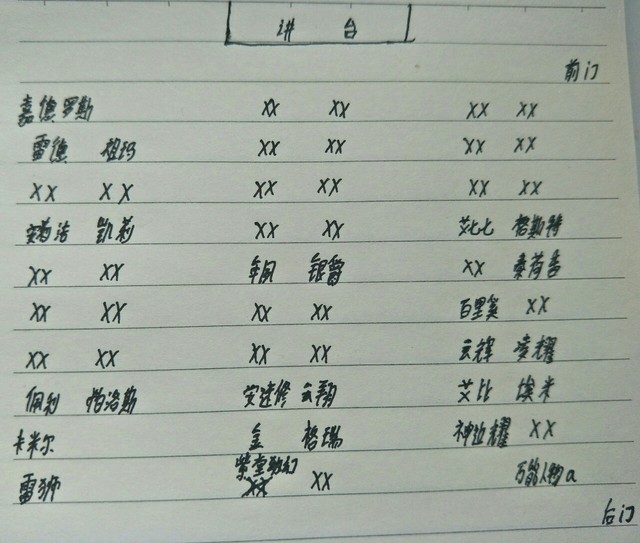 讲 台
前门
嘉德罗斯 xx xx xx xx
雷德 祖玛 xx xx xx xx
xx xx xx xx xx xx
安莉洁 凯莉 xx xx 艾比 格斯特
xx xx 银爵 xx 秦荷香
xx xx xx xx 百里奚 xx
xx xx xx xx 云辉 凌耀
佩利 帕洛斯 安迷修 云翔 艾比 埃米
卡米尔 金 格瑞 神近耀 xx
紫堂幻
雷狮 xx 万能人物a
后门